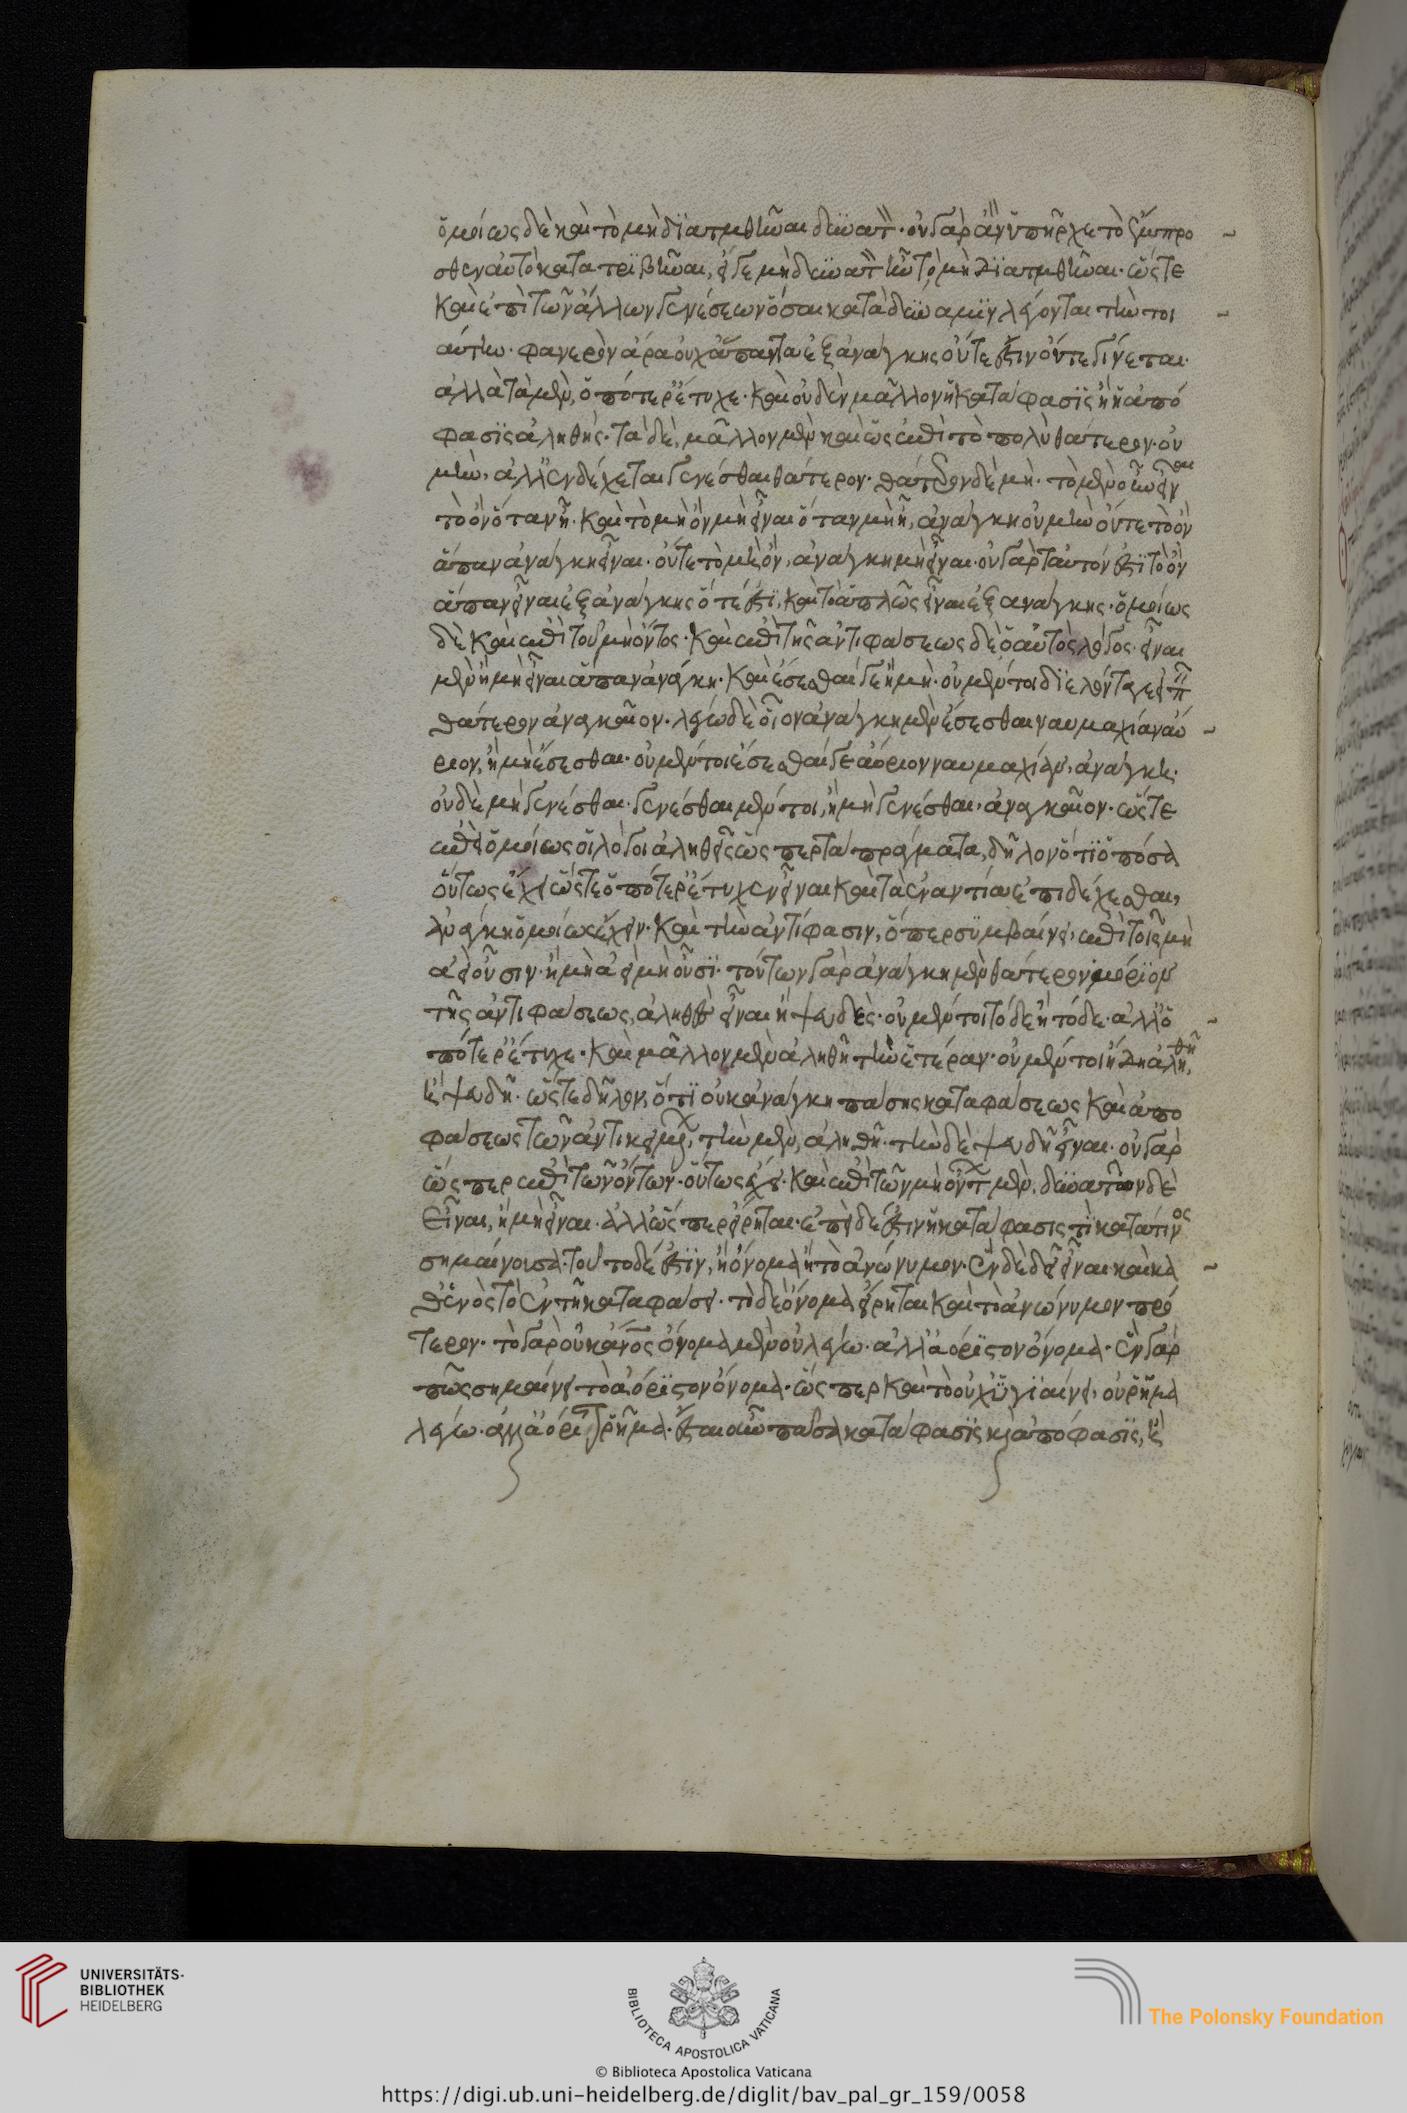 ὁμοίως δὲ καὶ τὸ μὴ διατμηθῆναι δυνατόν· οὐ γὰρ ἂν ὑπῆρχε τὸ ἔμπρο
σθεν αὐτὸ κατατριβῆναι, εἴγε μὴ δυνατὸν ἦν τὸ μὴ διατμηθῆναι· ὥστε
καὶ ἐπὶ τῶν ἄλλων γενέσεων ὅσαι κατὰ δύναμιν λέγονται τὴν τοι
αύτην· φανερὸν ἄρα οὐχ ἅπαντα ἐξ ἀνάγκης οὔτε ἔστιν οὔτε γίνεται·
ἀλλὰ τὰ μὲν, ὁπότερ' ἔτυχε· καὶ οὐδὲν μᾶλλον ἡ κατάφασις ἢ ἡ ἀπό
φασις ἀληθής· τὰ δὲ, μᾶλλον μὲν καὶ ὡς ἐπὶ τὸ πολὺ θάτερον· οὐ
μὴν, ἀλλ' ἐνδέχεται γενέσθαι θάτερον· θάτερον δὲ μή· τὸ μὲν οὖν εἶναι
τὸ ὂν ὅταν ᾖ· καὶ τὸ μὴ ὂν μὴ εἶναι ὅταν μὴ ᾖ, ἀνάγκη οὐ μὴν οὔτε τὸ ὂν
ἅπαν ἀνάγκη εἶναι· οὔτε τὸ μὴ ὂν, ἀνάγκη μὴ εἶναι· οὐ γὰρ ταυτόν ἐστι τὸ ὂν
ἅπαν εἶναι ἐξ ἀνάγκης ὅτε ἐστὶ, καὶ τὸ ἁπλῶς εἶναι ἐξ ἀνάγκης· ὁμοίως
δὲ καὶ ἐπὶ τοῦ μὴ ὄντος· καὶ ἐπὶ τῆς ἀντιφάσεως δὲ ὁ αὐτὸς λόγος· εἶναι
μὲν ἢ μὴ εἶναι ἅπαν ἀνάγκη· καὶ ἔσεσθαί γε ἢ μή· οὐ μέντοι διελόντα εἰπεῖν
θάτερον ἀναγκαῖον· λέγω δὲ οἷον ἀνάγκη μὲν ἔσεσθαι ναυμαχίαν αὔ
ριον, ἢ μὴ ἔσεσθαι· οὐ μέντοι ἔσεσθαί γε αὔριον ναυμαχίαν, ἀνάγκη·
οὐδὲ μὴ γενέσθαι· γενέσθαι μέντοι, ἢ μὴ γενέσθαι, ἀναγκαῖον· ὥστε
ἐπεὶ ὁμοίως οἱ λόγοι ἀληθεῖς ὥσπερ τὰ πράγματα, δῆλον ὅτι ὁπόσα
οὕτως ἔχει ὥστε ὁπότερ' ἔτυχεν εἶναι καὶ τὰ ἐναντία ἐπιδέχεσθαι,
ἀνάγκη ὁμοίως ἔχειν· καὶ τὴν ἀντίφασιν, ὅπερ συμβαίνει, ἐπὶ τοῖς μὴ
ἀεὶ οὖσιν· ἢ μὴ ἀεὶ μὴ οὖσι· τούτων γὰρ ἀνάγκη μὲν θάτερον μόριον
τῆς ἀντιφάσεως, ἀληθὲς εἶναι ἢ ψευδὲς· οὐ μέντοι τόδε ἢ τόδε· ἀλλ' ὁ
πότερ' ἔτυχε· καὶ μᾶλλον μὲν ἀληθῆ τὴν ἑτέραν· οὐ μέντοι ἤδη ἀληθῆ,
ἢ ψευδῆ· ὥστε δῆλον, ὅτι οὐκ ἀνάγκη πάσης καταφάσεως καὶ ἀπο
φάσεως τῶν ἀντικειμένων, τὴν μὲν, ἀληθῆ· τὴν δὲ ψευδῆ εἶναι· οὐ γὰρ
ὥσπερ ἐπὶ τῶν ὄντων· οὕτως ἔχει· καὶ ἐπὶ τῶν μὴ ὄντων μὲν, δυνατῶν δὲ
εἶναι, ἢ μὴ εἶναι· ἀλλ' ὥσπερ εἴρηται· ἐπεὶ δέ ἐστιν ἡ κατάφασις τὶ κατά τινος
σημαίνουσα· τοῦτο δέ ἐστιν, ἢ ὄνομα ἢ τὸ ἀνώνυμον· ἓν δὲ δεῖ εἶναι καὶ κα
θ' ἑνὸς τὸ ἐν τῇ καταφάσει· τὸ δὲ ὄνομα εἴρηται καὶ τὸ ἀνώνυμον πρό
τερον· τὸ γὰρ οὐκ ἄνθρωπος ὄνομα μὲν οὐ λέγω· ἀλλ' ἀόριστον ὄνομα· ἓν γάρ
πως σημαίνει τὸ ἀόριστον ὄνομα· ὥσπερ καὶ τὸ οὐχ ὑγιαίνει, οὐ ῥῆμα
λέγω· ἀλλ' ἀόριστον ῥῆμα· ἔσται οὖν πᾶσα κατάφασις καὶ ἀπόφασις, ἢ
UNIVERSITÄTS-
BIBLIOTHEK
HEIDELBERG
BIBLIOTECA APOSTOLICA VATICANA
The Polonsky Foundation
© Biblioteca Apostolica Vaticana
https://digi.ub.uni-heidelberg.de/diglit/bav_pal_gr_159/0058